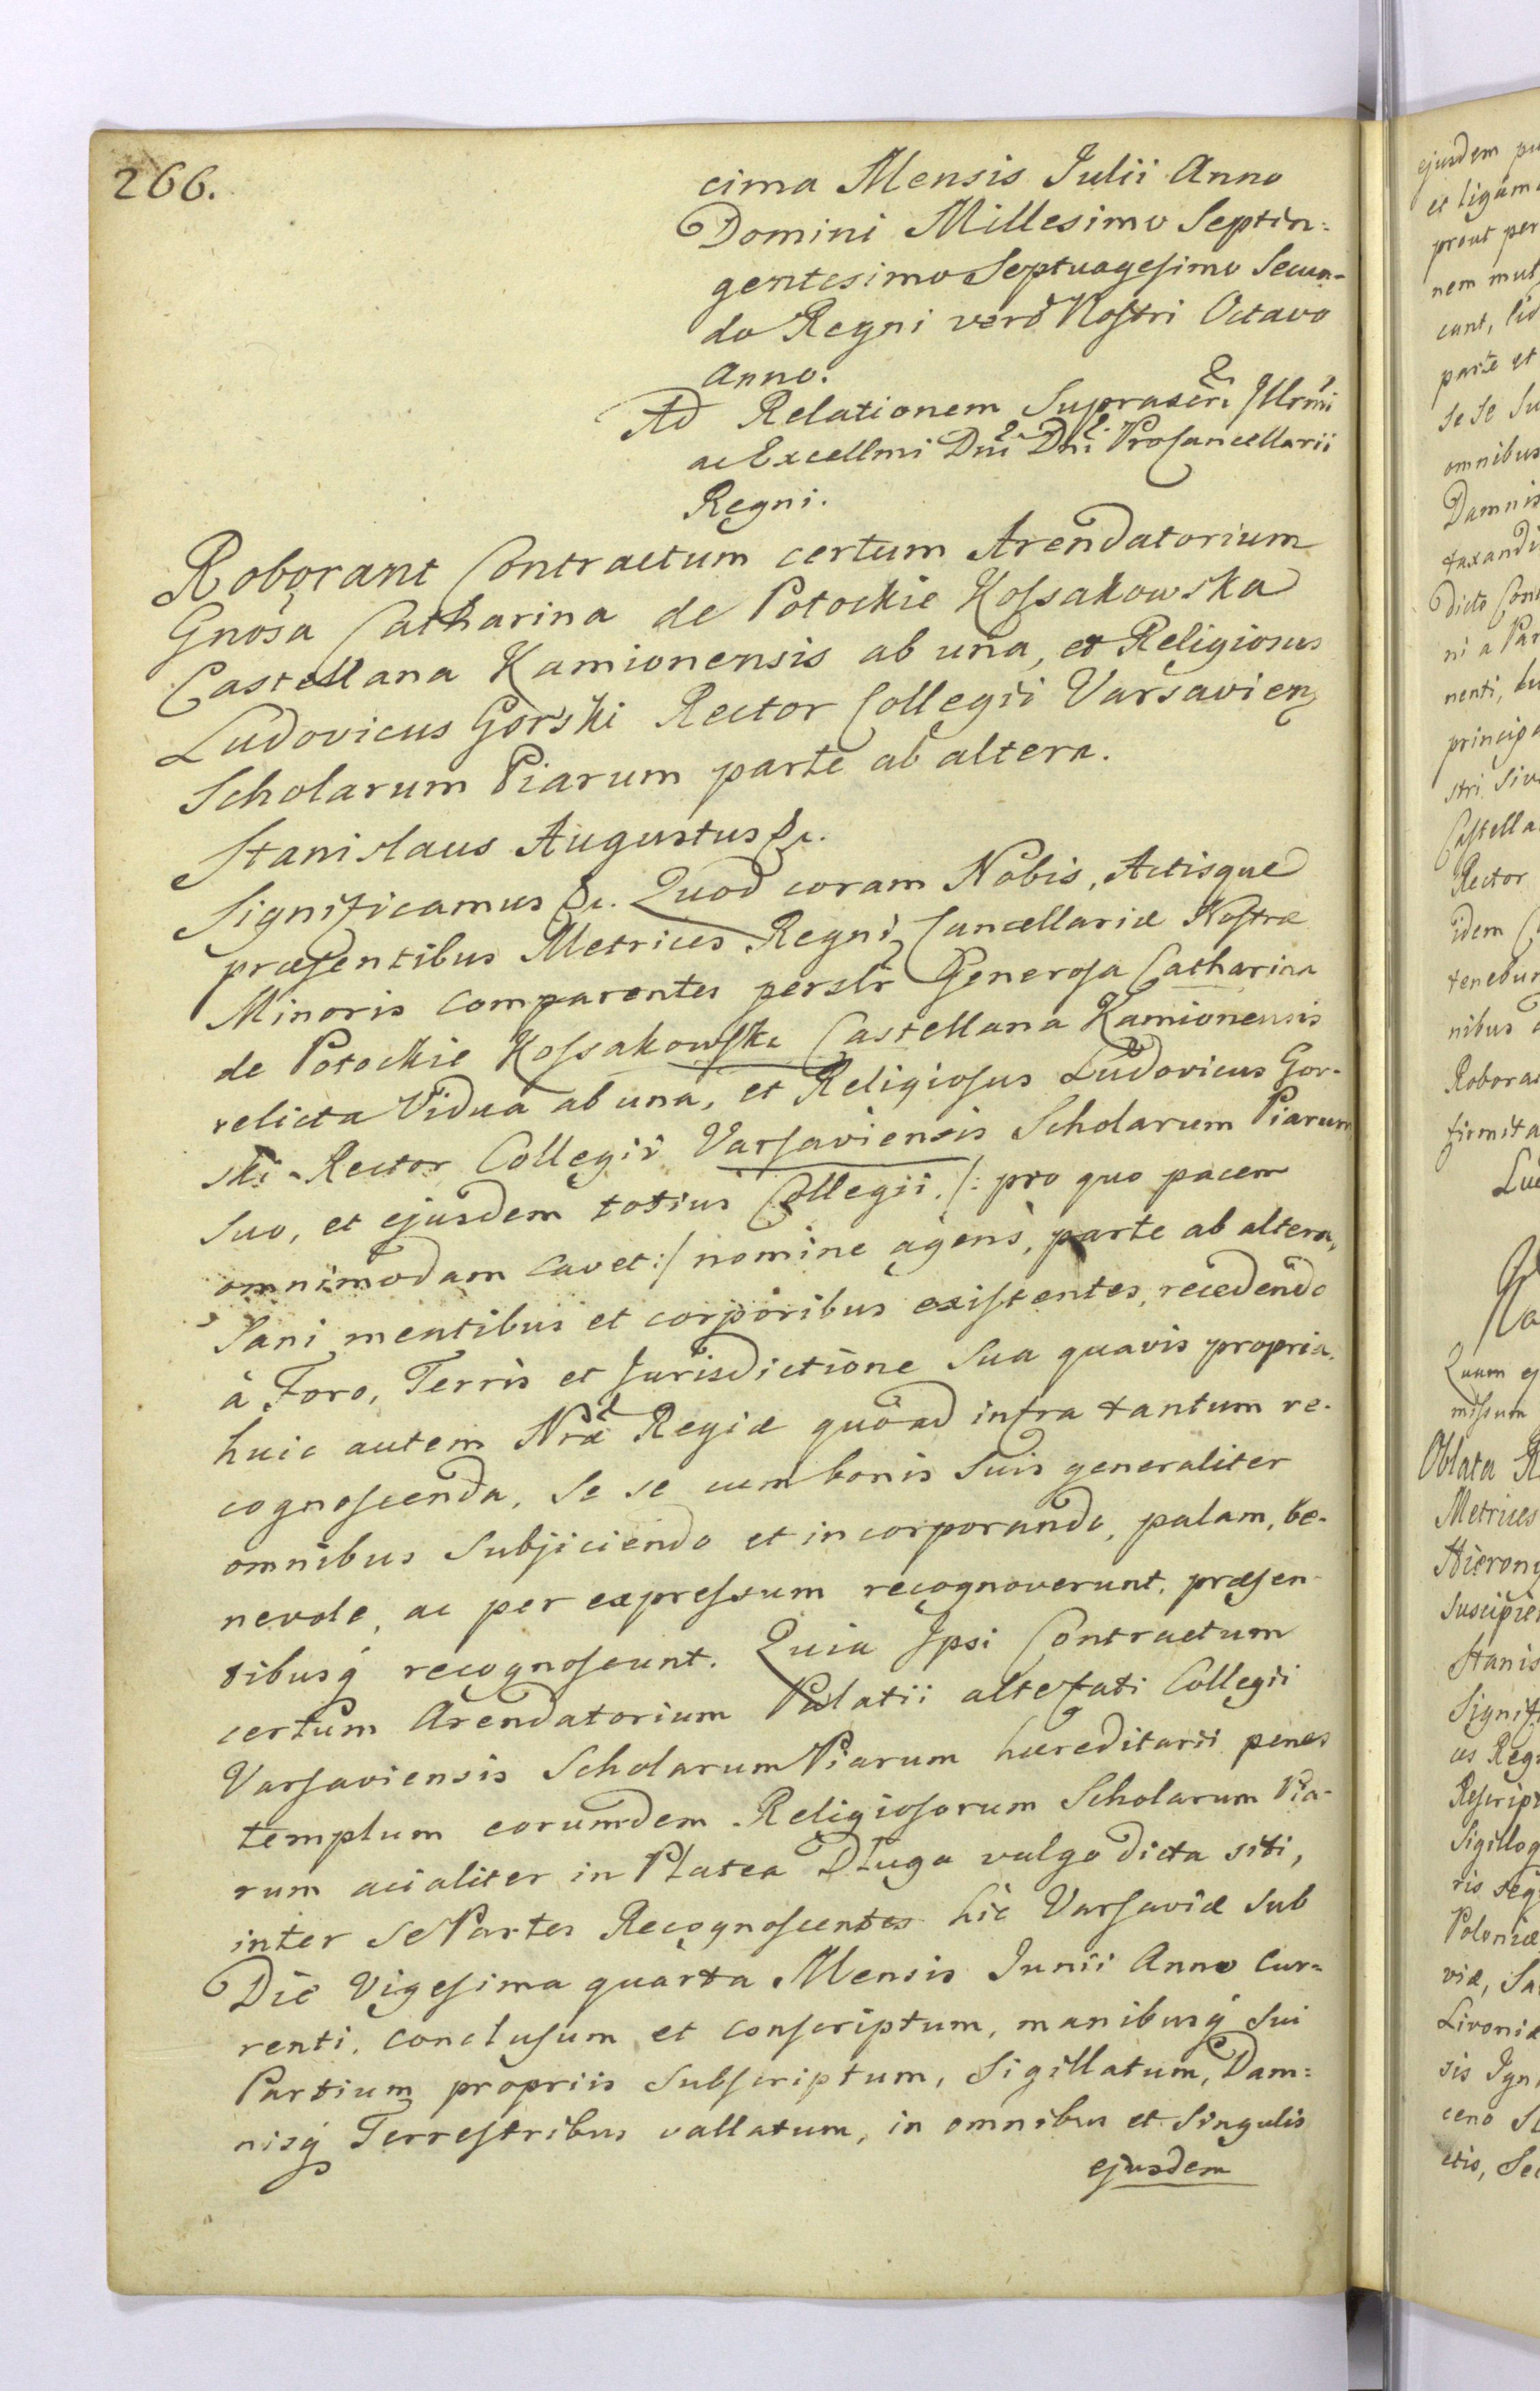 266.
cima Mensis Julii Anno
Domini Millesimo Septin=
gentesimo Septuagesimo Secun-
do Regni verò Nostri Octavo
Anno.
Ad Relationem Suprascri Illrmi
ac Excellmi Dni Dni ProCancellarii
Regni.
Roborant Contractum certum Arendatorium
Gnosa Catharina de Potockie Kossakowska
Castellana Kamionensis ab una, et Religiosus
Ludovicus Gorski Rector Collegii Varsavien
Scholarum Piarum parte ab altera.
Stanislaus Augustus &c.
Significamus &c. Quod coram Nobis, Actisque
præsentibus Metrices Regni Cancellariæ Nostræ
Minoris comparentes perslr Generosa Catharina
de Potockie Kossakowska Castellana Kamionensis
relicta Vidua ab una, et Religiosus Ludovicus Gor-
ski Rector Collegii Varsaviensis Scholarum Piarum
suo, et ejusdem totius Collegii, /: pro quo pacem
omnimodam cavet :/ nomine agens, parte ab altera,
Sani mentibus et corporibus existentes, recedendo
à Foro, Terris et Jurisdictione sua quavis propria.
huic autem Nræ Regiæ quoad infra tantum re-
cognoscenda, se se cum bonis suis generaliter
omnibus subjiciendo et incorporando, palam, be-
nevole, ac per expressum recognoverunt, præsen-
tibusq recognoscunt. Quia Ipsi Contractum
certum Arendatorium Palatii altefati Collegii
Varsaviensis Scholarum Piarum hæreditarii penes
templum eorumdem Religiosorum Scholarum Pia-
rum acialiter in Platea Długa vulgo dicta siti,
inter se Partes Recognoscentes hic Varsaviæ sub
Die Vigesima quarta Mensis Junii Anno Cur=
renti, conclusum et conscriptum, manibusq sui
Partium propriis subscriptum, Sigillatum, Dam=
nisq Terrestribus vallatum, in omnibus et singulis
ejusdem
ejusdem
et ligam
prout per
nem mut
cunt,
parte et
se se su
omnibus
Damnis
taxandi
dicto Con
ni a Par
nenti,
princip
stri siv
Castella
Rector
idem
tenebun
nibus
Robora
firmita
Quam
missum
Oblata
Metrices
Hierony
suscipie
Stanis
Signif
ces Reg
Rescrip
Sigillo
ris
Poloniæ
viæ, Sa
Livoniæ
sis
ceno
ctis, Se